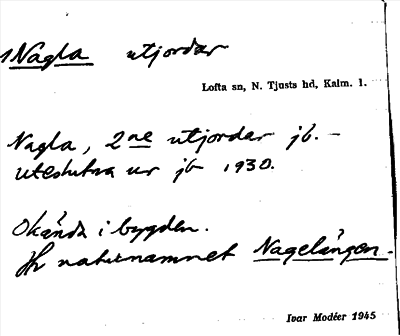 1Nagla utjordar
Lofta sn, N. Tjusts hd, Kalm. l.
Nagla, 2ne utjordar jb. –
uteslutna ur jb 1930.
Okända i bygden.
Jfr naturnamnet Nagelängen.
Ivar Modéer 1945